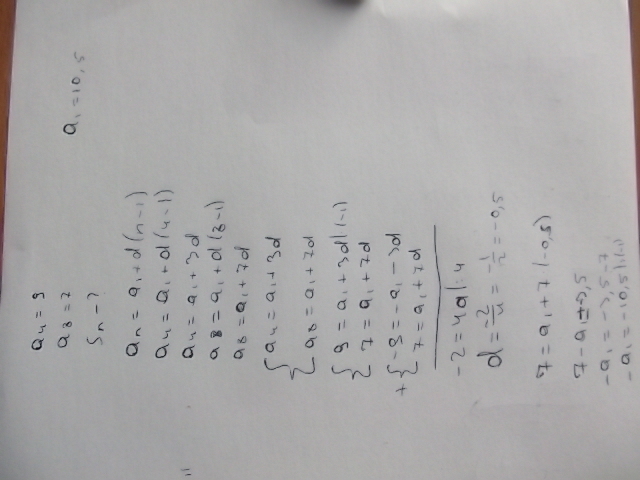 a₄ = 9
a₈ = 7
Sₙ - ?
aₙ = a₁ + d(n-1)
a₄ = a₁ + d(4-1)
a₄ = a₁ + 3d
a₈ = a₁ + d(8-1)
a₈ = a₁ + 7d
{ a₄ = a₁ + 3d
a₈ = a₁ + 7d
{ 9 = a₁ + 3d |(-1)
7 = a₁ + 7d
+ { -9 = -a₁ - 3d
7 = a₁ + 7d
-2 = 4d |:4
d = -2/4 = -1/2 = -0,5
7 = a₁ + 7(-0,5)
-a₁ = -3,5-7
-a₁ = -10,5
a₁ = 10,5